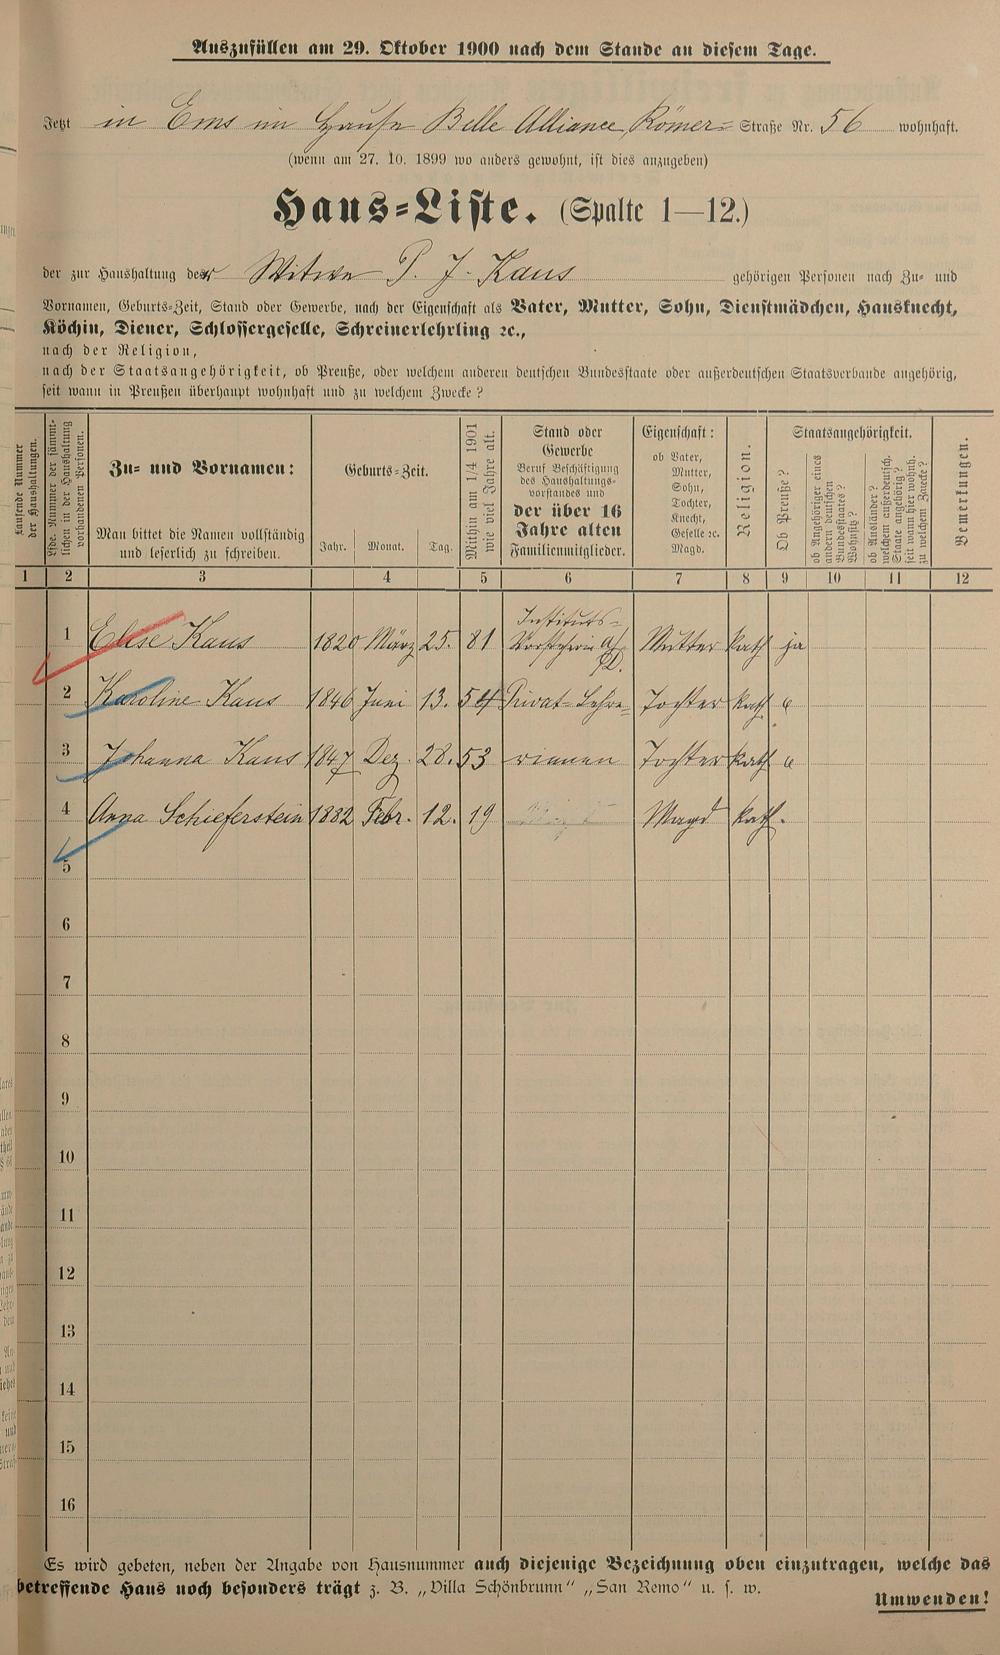 Auszufüllen am 29. Oktober 1900 nach dem Stande an diesem Tage.
Jetzt in Ems im Hause Belle Alliance Römer= Straße Nr. 56 wohnhaft.
(wenn am 27. 10. 1899 wo anders gewohnt, ist dies anzugeben)
Haus=Liste. (Spalte 1—12.)
der zur Haushaltung der Witwe P. J. Kaus gehörigen Personen nach Zu- und
Vornamen, Geburts-Zeit, Stand oder Gewerbe, nach der Eigenschaft als Vater, Mutter, Sohn, Dienstmädchen, Hausknecht,
Köchin, Diener, Schlossergeselle, Schreinerlehrling ꝛc.,
nach der Religion,
nach der Staatsangehörigkeit, ob Preuße, oder welchem anderen deutschen Bundesstaate oder außerdeutschen Staatsverbande angehörig,
seit wann in Preußen überhaupt wohnhaft und zu welchem Zwecke?
Laufende Nummer der Haushaltungen.
Lfde. Nummer der sämmt-
lichen in der Haushaltung
vorhandenen Personen.
Zu- und Vornamen:
Man bittet die Namen vollständig
und leserlich zu schreiben.
Geburts-Zeit.
Jahr. Monat. Tag.
Mithin am 1/4 1901
wie viel Jahre alt.
Stand oder
Gewerbe
Beruf Beschäftigung
des Haushaltungs-
vorstandes und
der über 16
Jahre alten
Familienmitglieder.
Eigenschaft:
ob Vater,
Mutter,
Sohn,
Tochter,
Knecht,
Geselle ꝛc.
Magd.
Religion.
Staatsangehörigkeit.
Ob Preuße?
ob Angehöriger eines
andern deutschen
Bundesstaates?
Wohnsitz?
ob Ausländer?
welchem außerdeutsch.
Staate angehörig?
seit wann hier wohnh.
zu welchem Zwecke?
Bemerkungen.
1 2 3 4 5 6 7 8 9 10 11 12
1 Elise Kaus 1820 März 25. 81 Instituts=
Vorsteherin a/D. Mutter kath ja
2 Karoline Kaus 1846 Juni 13. 54 Privat=Lehre= Tochter kath "
3 Johanna Kaus 1847 Dez. 28. 53 rinnen Tochter kath "
4 Anna Schieferstein 1882 Febr. 12. 19 Magd kath.
5
6
7
8
9
10
11
12
13
14
15
16
Es wird gebeten, neben der Angabe von Hausnummer auch diejenige Bezeichnung oben einzutragen, welche das
betreffende Haus noch besonders trägt z. B. „Villa Schönbrunn“ „San Remo“ u. s. w.
Umwenden!